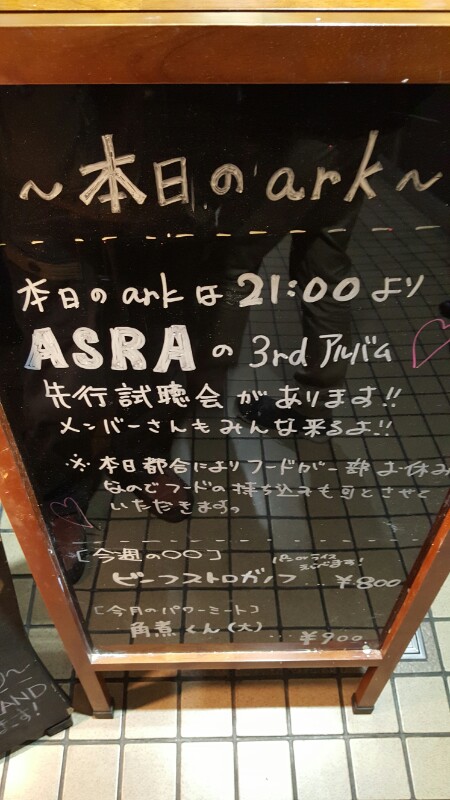 ～本日のark～
本日のarkは21:00より
ASRAの3rdアルバム
先行試聴会があります!!
メンバーさんもみんな来るよ!!
※本日都合によりフードが一部お休み
なのでフードの持ち込みも可とさせて
いただきます。
[今週の〇〇]
パンorライス
えらべます!
ビーフストロガノフ…¥800
[今月のパワーミート]
角煮くん(大)…¥900
AND
ます!